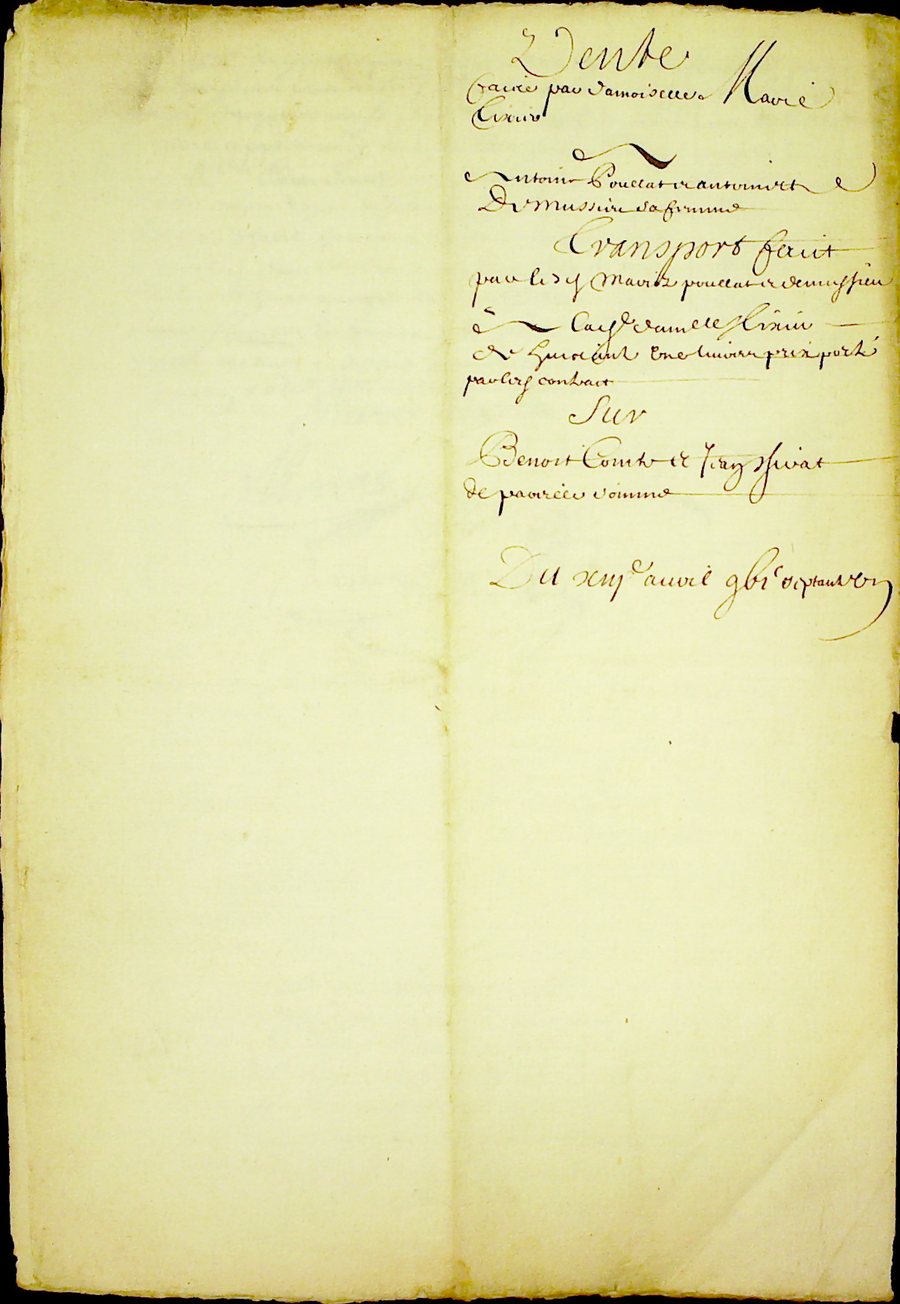 Vente
faicte par damoiselle Marie
Tixier
a
Antoine Poullat et antoinette
Demussieu sa femme
Transport faict
par lesd. Mariez poullat et demussieu
a lad. damelle Tixier
de huictant une livre prix porté
par led. contract
Sur
Benoist Comte et Jean
de pareille somme
Du xiij^e avril gbi^c septante un